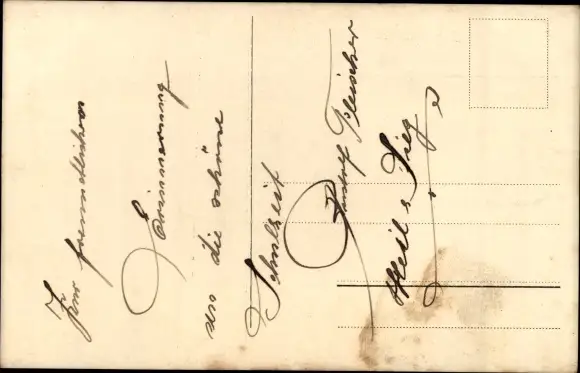 Zur freundlichen
Erinnerung
an die schöne
Schulzeit
Rudolf Fleischer
Heil & Sieg